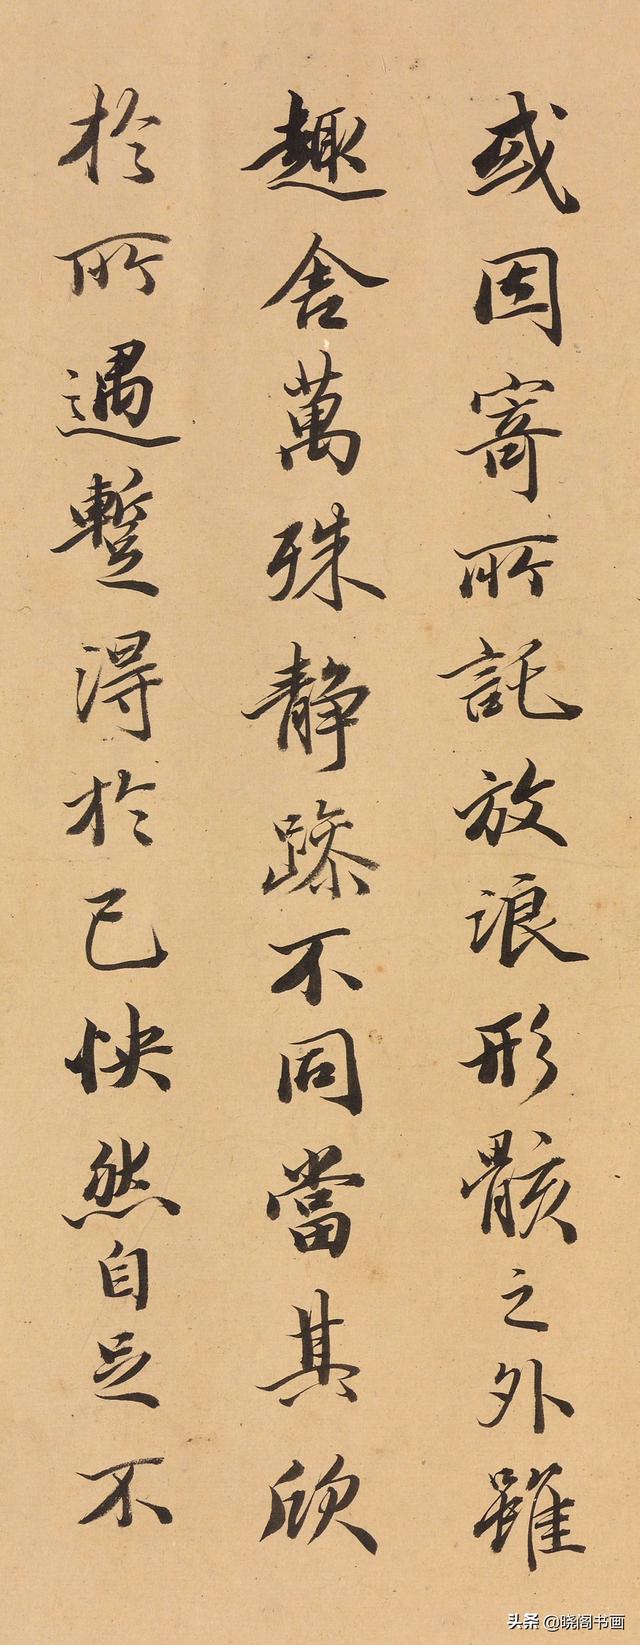 或因寄所託放浪形骸之外雖
趣舍萬殊静躁不同當其欣
於所遇蹔得於己快然自足不
头条 @晓阁书画